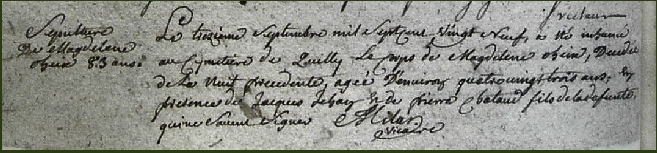 recteur
Sepulture
De Magdelene
chein 83 ans
Le treizieme Septembre mil Sept cent vingt Neuf, a été inhumé
au Cymetiere de Quilly Le corps de Magdelene chein, Decedée
de la Nuit precedente, agée D'environ quatre vingt trois ans, en
presence de Jacques de pierre chataud fils de la defunte,
qui ne Savent Signer
Vicaire